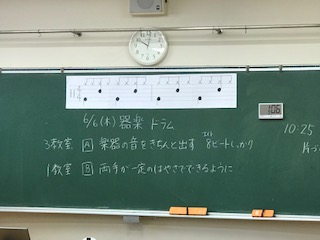 6/6(木) 器楽 ドラム
3教室 A 楽器の音をきちんと出す 8ビートしっかり
1教室 B 両手が一定のはやさでできるように
10:25